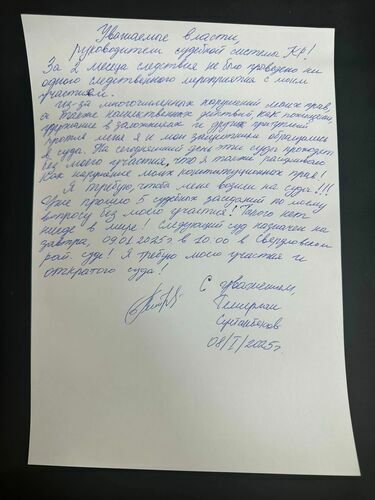 Уважаемые власти,
руководители судебной системы КР!
За 2 месяца следствия не было проведено ни
одного следственного мероприятия с моим
участием.
Из-за многочисленных нарушений моих прав,
а также насильственных действий, как похищение,
удержание в заложниках и других действий
против меня я и мои защитники обращались
в суда. На сегодняшний день эти суды проходят
без моего участия, что я также расцениваю
как нарушение моих конституционных прав!
Я требую, чтобы меня возили на суды!!!
Уже прошло 5 судебных заседаний по моему
вопросу без моего участия! Такого нет
нигде в мире! Следующий суд назначен на
завтра, 09.01.2025г в 10.00 в Свердловском
рай. суде! Я требую моего участия и
открытого суда!
С уважением,
Темирлан
Султанбеков
08/I/2025г.